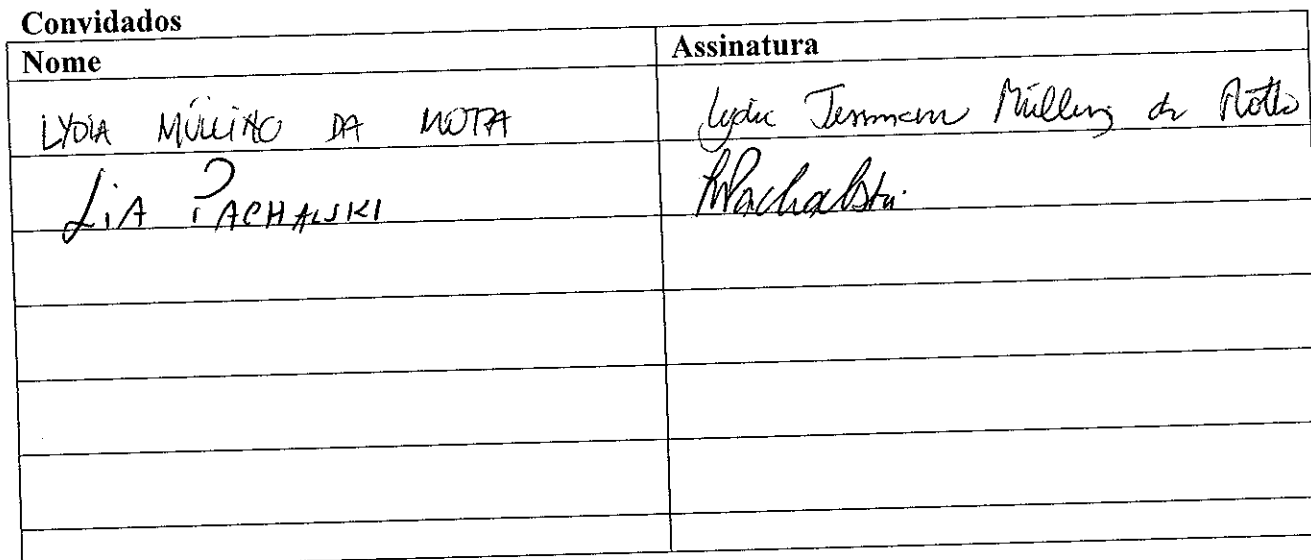 Convidados
Nome Assinatura
LYDIA MÜLLING DA MOTA Lydia Mülling da Motta
LiA PACHALSKI Pachalski